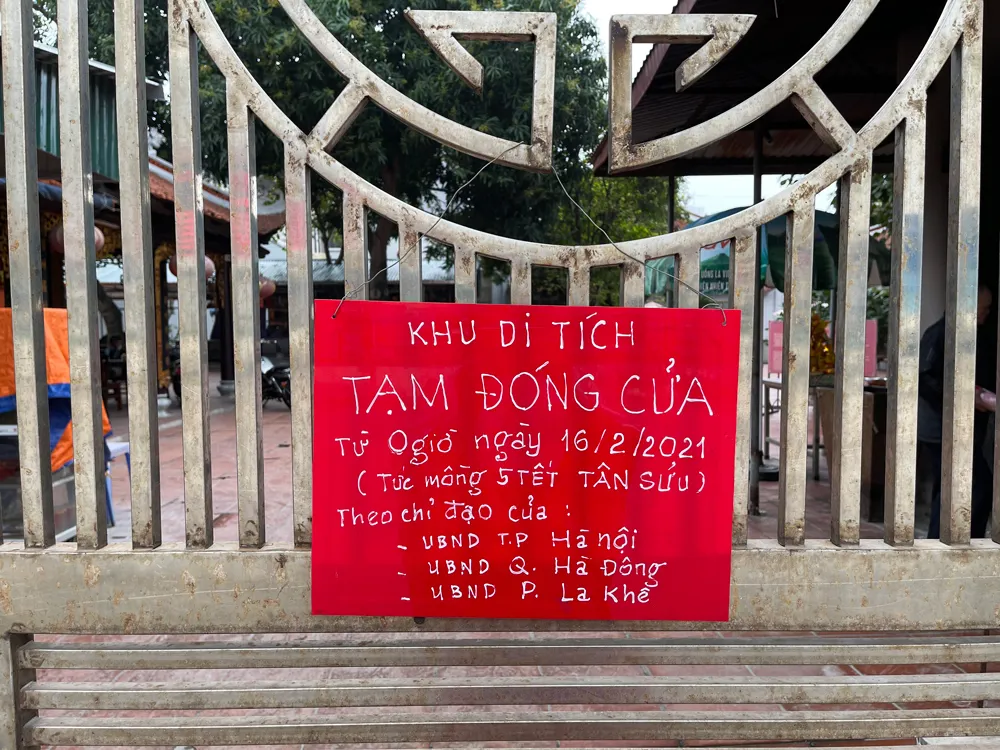 KHU DI TÍCH
TẠM ĐÓNG CỬA
Từ 0giờ ngày 16/2/2021
(Tức mồng 5 TẾT TÂN SỬU)
Theo chỉ đạo của :
- UBND T.P Hà nội
- UBND Q. Hà Đông
- UBND P. La Khê